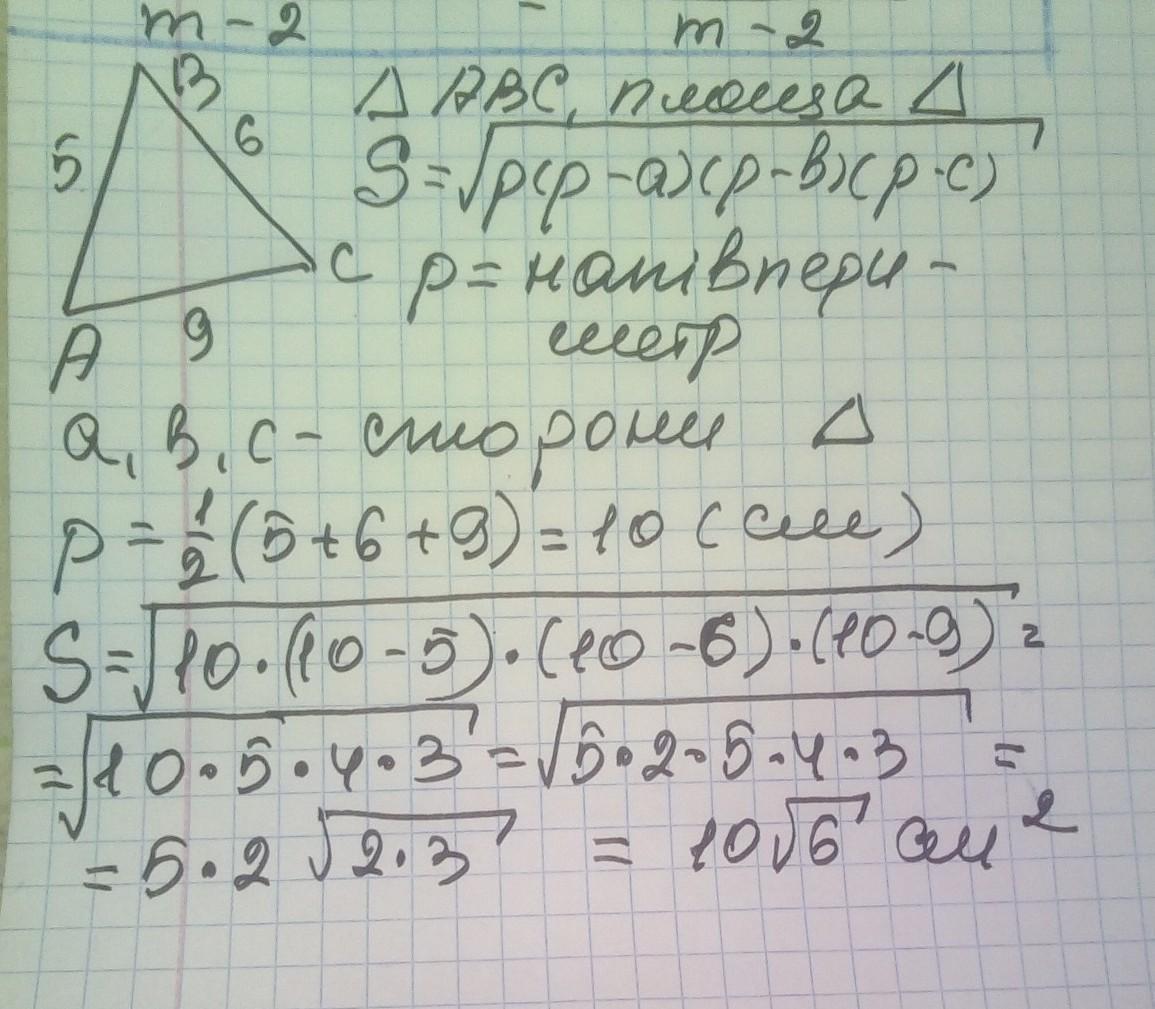 m - 2 m - 2
B
Δ ABC, площа Δ
5 6
S = √p(p - a)(p - в)(p - c)
C p = напівпери -
метр
A 9
a, в, c - сторони Δ
p = 1/2 (5 + 6 + 9) = 10 (см)
S = √10 · (10 - 5) · (10 - 6) · (10 - 9) =
= √10 · 5 · 4 · 3 = √5 · 2 · 5 · 4 · 3 =
= 5 · 2 √2 · 3 = 10√6 см²